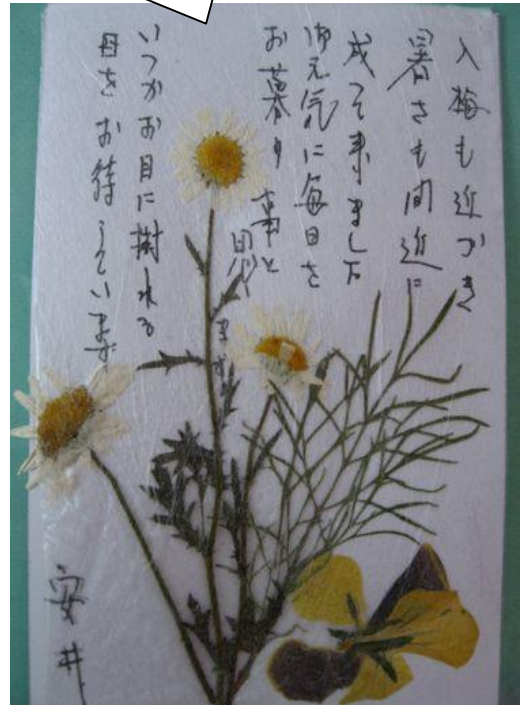 入梅も近づき
暑さも間近に
成って来ました
御元気に毎日を
お暮り事と
思います
いつかお目に掛れる
日をお待ちしています
安井